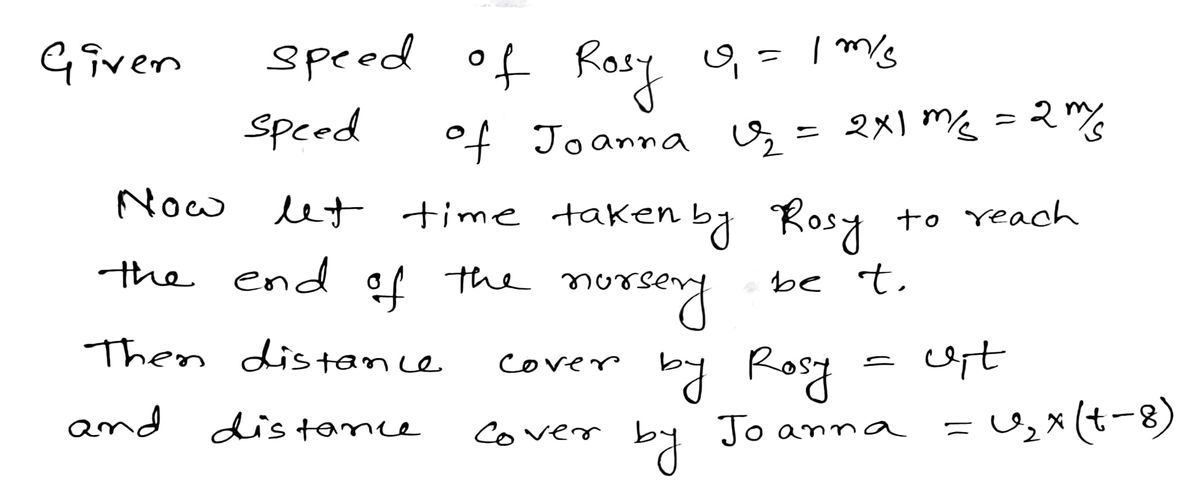 Given speed of Rosy v₁ = 1 m/s
speed of Joanna v₂ = 2×1 m/s = 2 m/s
Now let time taken by Rosy to reach
the end of the nursery be t.
Then distance cover by Rosy = v₁t
and distance cover by Joanna = v₂×(t-8)